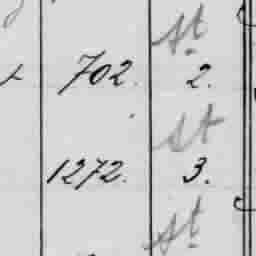 St.
702. 2.
St
1272. 3.
St.